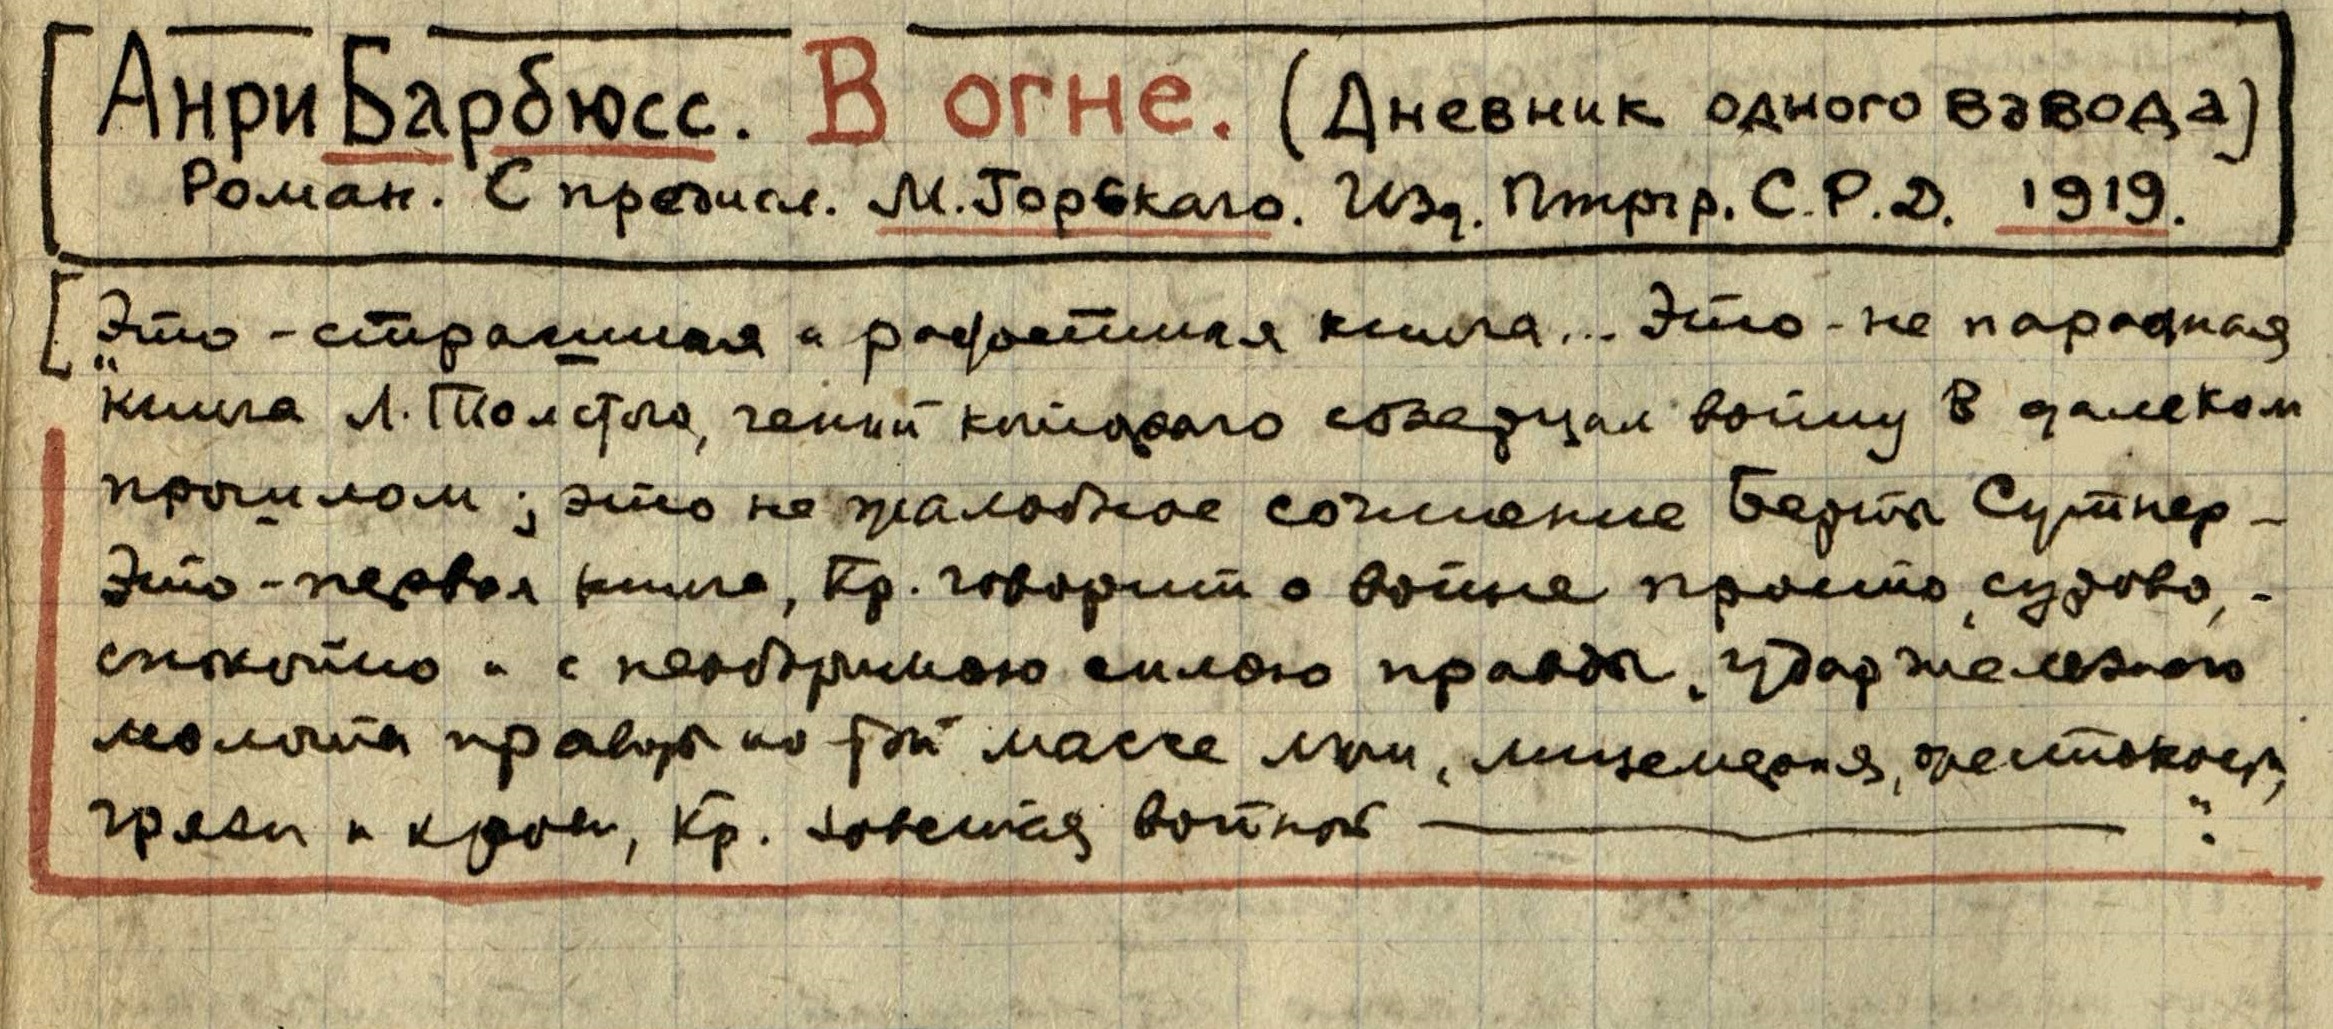 Анри Барбюсс. В огне. (Дневник одного взвода)
Роман. С предисл. М. Горькаго. Изд. Птргр. С.Р.Д. 1919.
"Это - страшная и радостная книга... Это - не парадная
книга Л. Толстого, гений котораго созерцал войну в далеком
прошлом; это не жалобное сочинение Берты Сутнер -
Это - первая книга, кр. говорит о войне просто, сурово, -
спокойно и с необоримою силою правды. Удар железного
молота правды по той маске лжи, лицемерия, жестокости,
грязи и крови, кр. зовется войной ———".